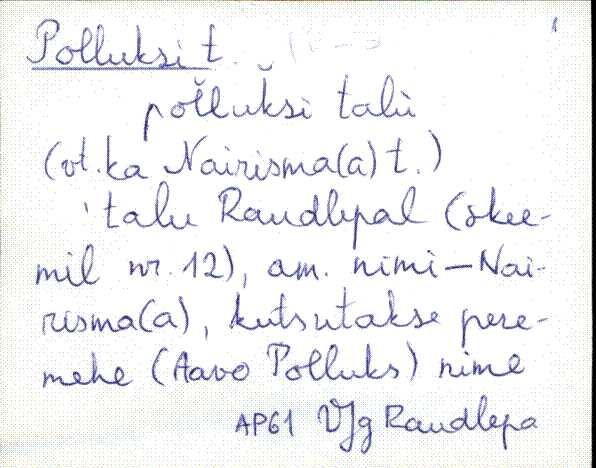 Polluksi t.
poĺĺuksi talu
(vt. ka Nairisma(a) t.)
talu Raudlepal (skee-
mil nr. 12), am. nimi – Nai-
risma(a), kutsutakse pere-
mehe (Aavo Polluks) nime
AP61 VJg Raudlepa